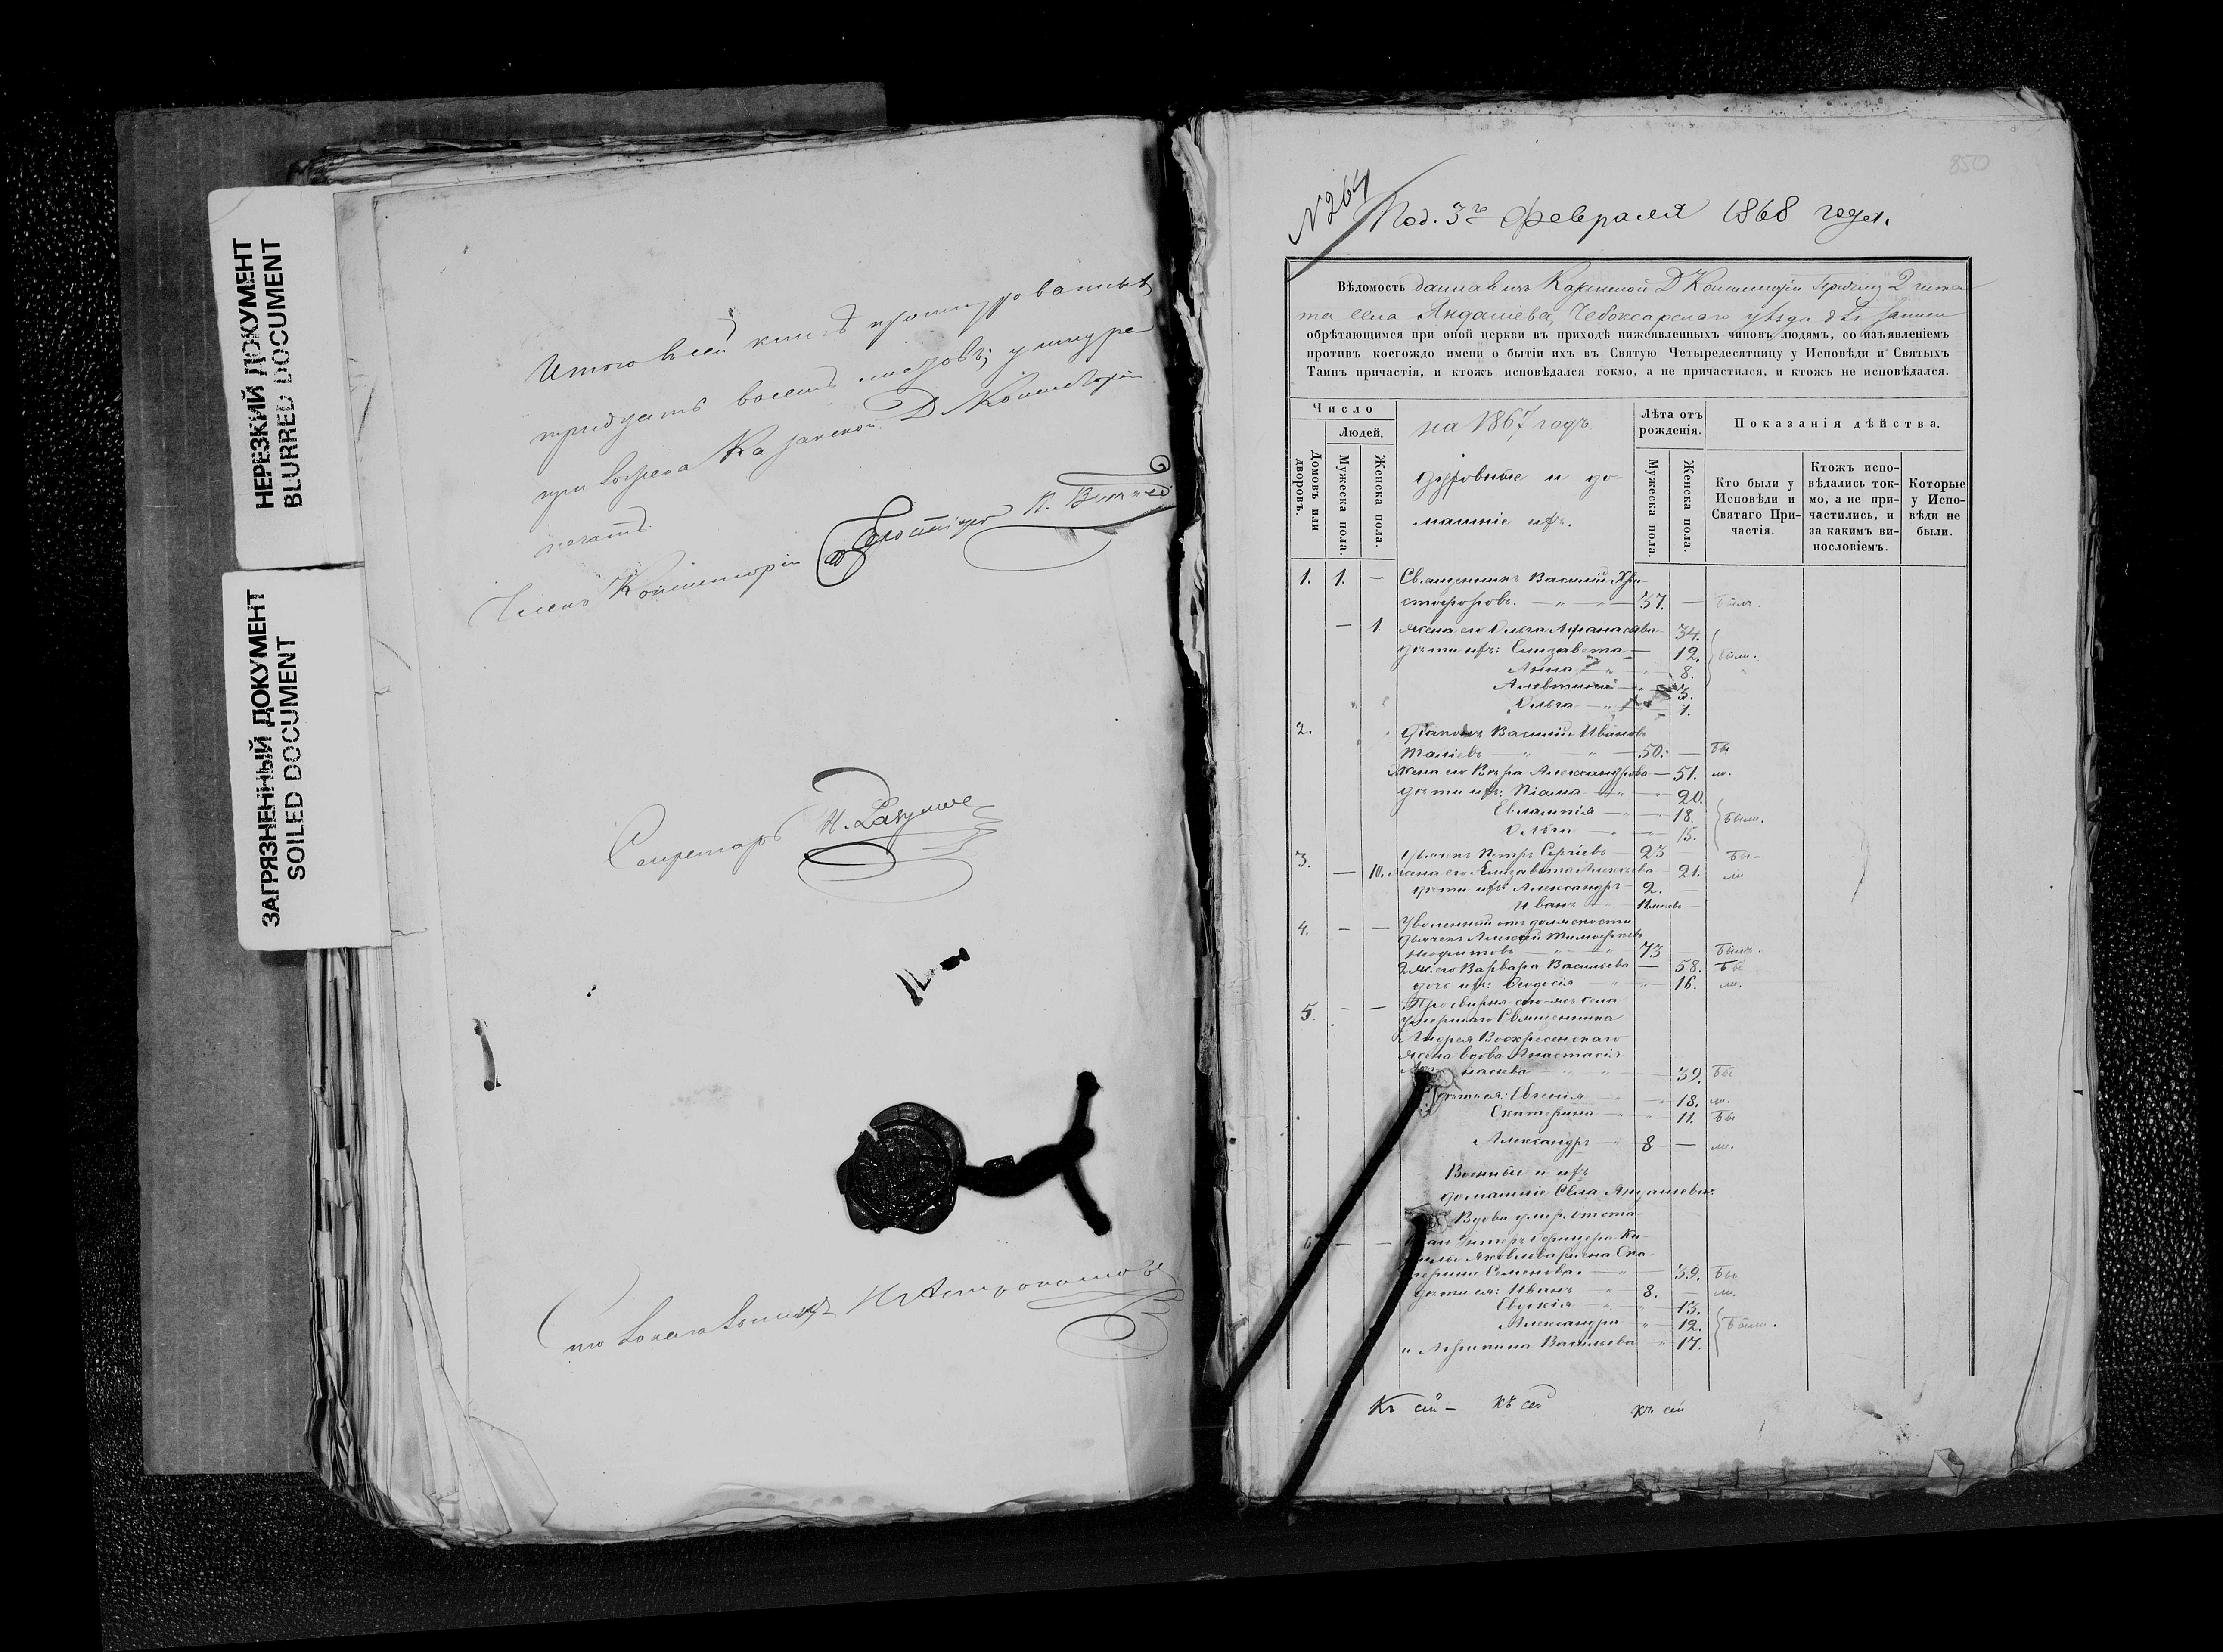 НЕРЕЗКИЙ ДОКУМЕНТ
BLURRED DOCUMENT
ЗАГРЯЗНЕННЫЙ ДОКУМЕНТ
SOILED DOCUMENT
Итого въ сей книгѣ
тридцать восемь листовъ, у шнура
Казанской Д Консисторіи
печать.
Членъ Консисторіи
Секретарь
850
№ 264
Под. 3го Февраля 1868 года.
Вѣдомость данная изъ Казанской Д Консисторіи Причту 2 шта
та села Яндашева, Чебоксарскаго уѣзда для записи
обрѣтающимся при оной церкви въ приходѣ нижеявленныхъ чиновъ людямъ, со изъявленіемъ
противъ коегождо имени о бытіи ихъ въ Святую Четыредесятницу у Исповѣди и Святыхъ
Таинъ причастія, и ктожъ исповѣдался токмо, а не причастился, и ктожъ не исповѣдался.
Число
Людей.
Домовъ или дворовъ.
Мужеска пола.
Женска пола.
на 1867 годъ.
духовные и до-
машніе ихъ.
Лѣта отъ рожденія.
Мужеска пола.
Женска пола.
Показанія дѣйства.
Кто были у Исповѣди и Святаго При-частія.
Ктожъ испо-вѣдались ток-мо, а не при-частились, и за какимъ ви-нословіемъ.
Которые у Испо-вѣди не были.
1. 1. — Священникъ Василій Хри-
стофоровъ. — „ — „ — 37. — Былъ.
— 1. жена его Ольга Афанасьева — 34.
дѣти ихъ: Елизавета — 12. Были.
Анна — „ — 8.
Алевтина — „ — 3.
Ольга — „ — 1.
2. Діаконъ Василій Ивановъ
Таліевъ — „ — „ — 50. — Бы
Жена его Вѣра Александрова — 51. ли.
дѣти ихъ: — „ — 20.
Евлампія — „ — 18. Были.
Ольга — „ — 15.
3. Дьячекъ Петръ Сергіевъ — 23 Бы-
— 10. жена его Елизавета Алексѣева 21. ли
дѣти ихъ Александръ — 2. —
Иванъ —
4. — — Уволенный отъ должности
дьячекъ Алексѣй Тимофеевъ
— „ — 73 — Былъ.
2 ж. его Варвара Васильева — 58. Бы
дочь ихъ: Ѳеодосія — „ — 16. ли.
5. — — Просвирня сего-же села
умершаго Священника
Андрея Воскресенскаго
жена вдова Анастасія
— „ — „ — 39. Бы
дѣти ея: Евгенія — 18. ли.
Екатерина — „ — 11. Бы
Александръ — „ 8 — ли.
Военные и ихъ
домашніе Села Яндашева.
6 — — Вдова умер. отста-
Семенова. — „ — 39. Бы
дѣти ея: Иванъ — „ 8. — ли.
Евдокія — „ — 13.
Александра — „ — 12. Были.
„ Агрипина Васильева — „ 17.
Къ сей — къ сей къ сей